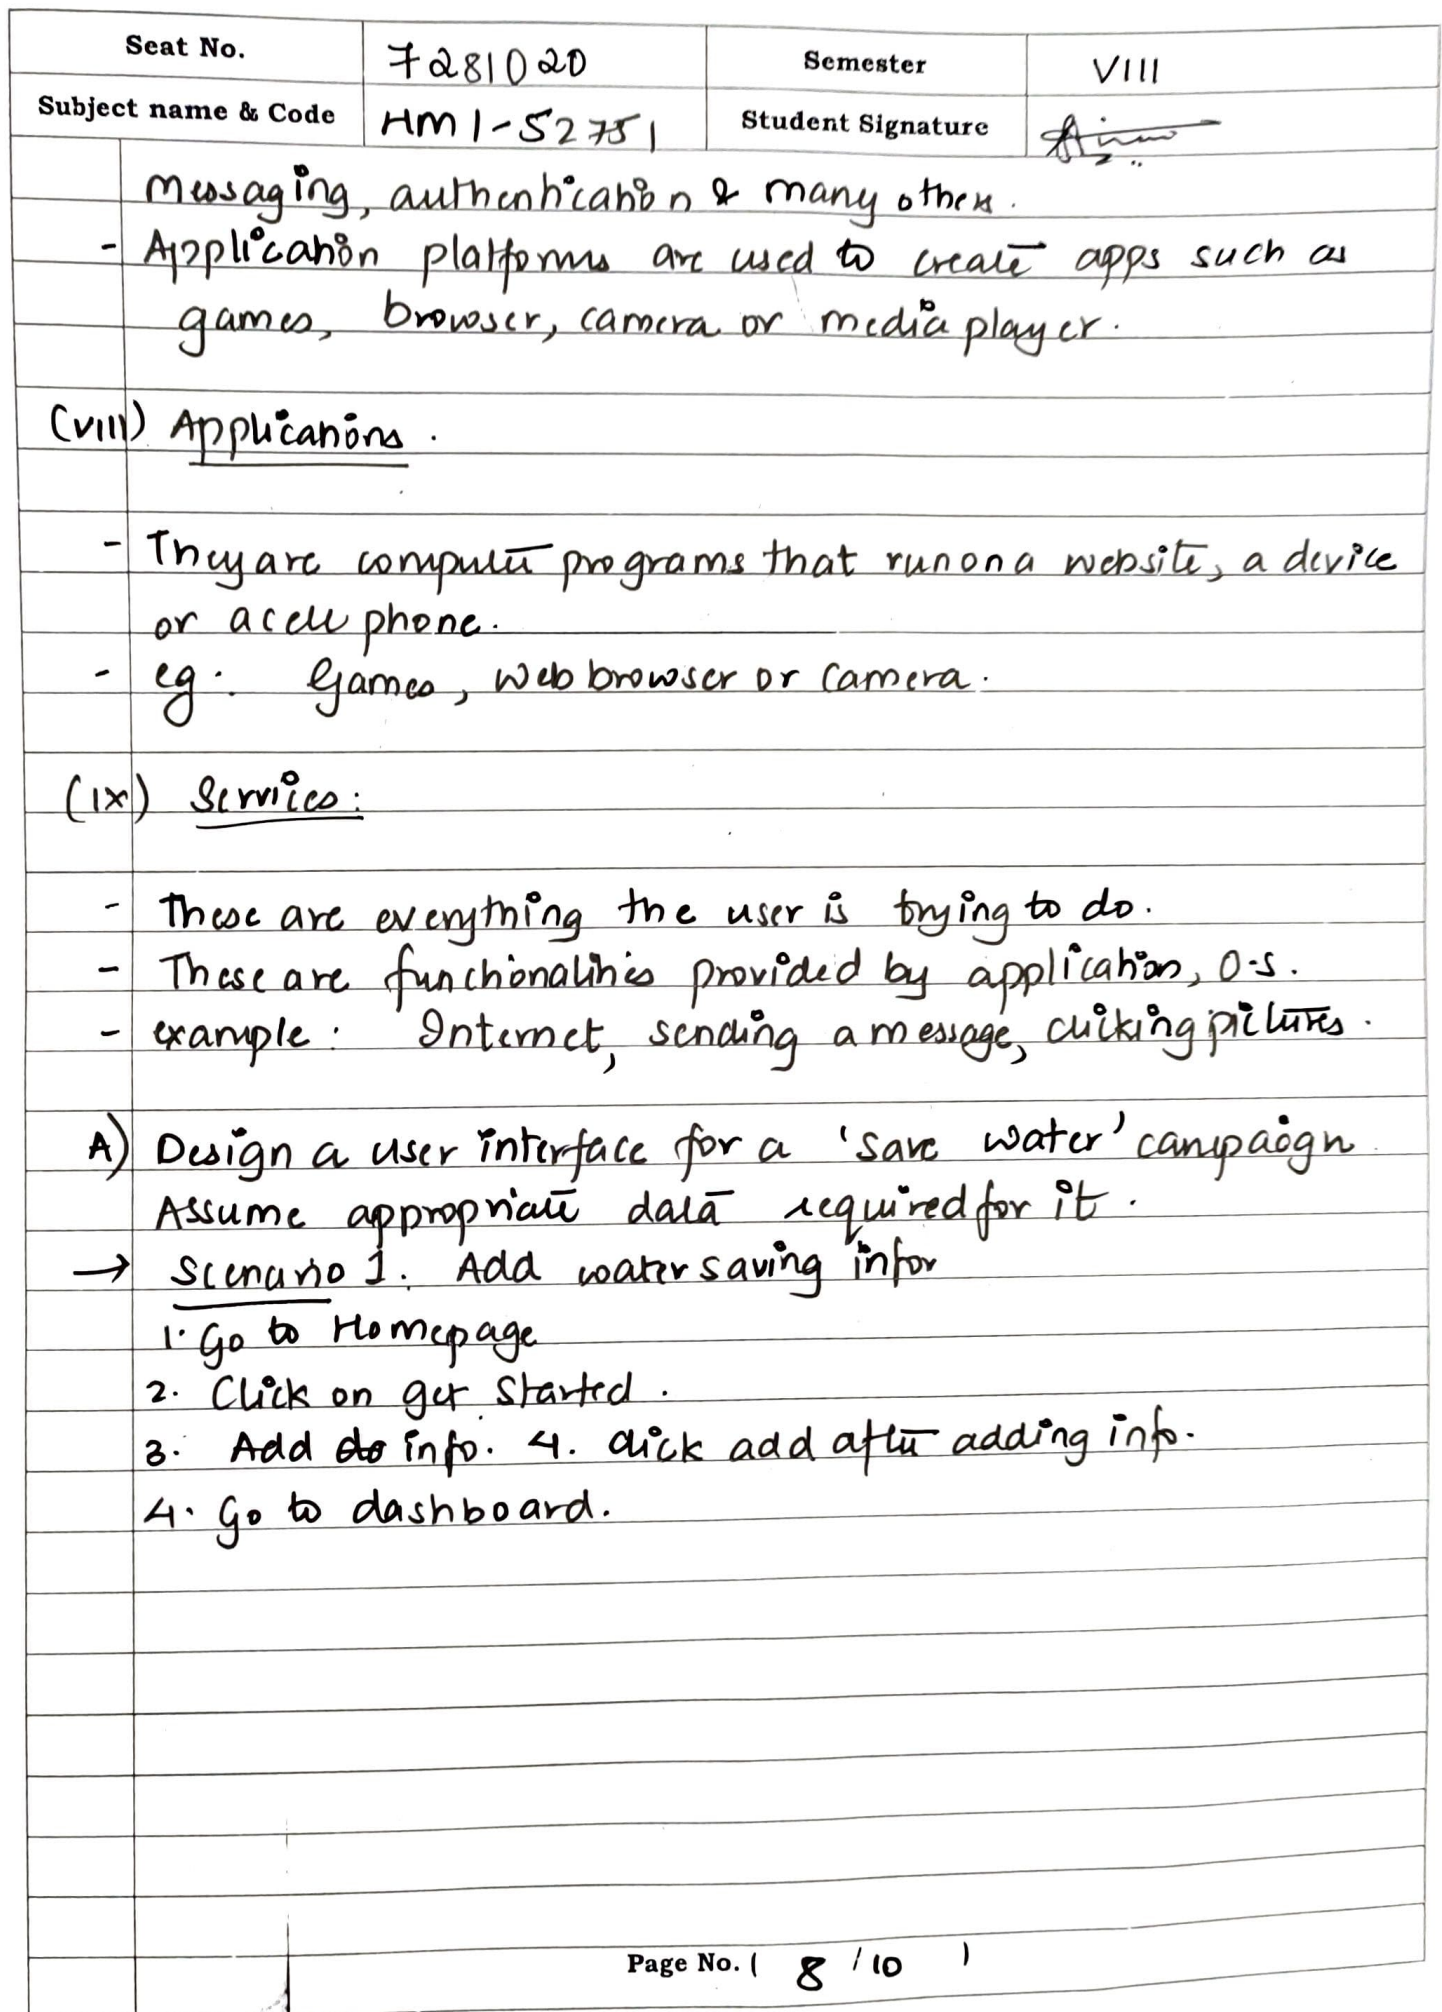 Seat No. 7281020 Semester VIII
Subject name & Code HMI-52751 Student Signature
messaging, authentication & many others.
- Application platforms are used to create apps such as
games, browser, camera or media player.
(viii) Applications.
- They are computer programs that run on a website, a device
or a cell phone.
- eg: Games, web browser or camera.
(ix) Services:
- These are everything the user is trying to do.
- These are functionalities provided by application, O.S.
- example: Internet, sending a message, clicking pictures.
A) Design a user interface for a 'save water' campaign
Assume appropriate data required for it.
→ Scenario 1. Add water saving infor
1. Go to Homepage
2. Click on get started.
3. Add do info. 4. click add after adding info.
4. Go to dashboard.
Page No. ( 8 / 10 )